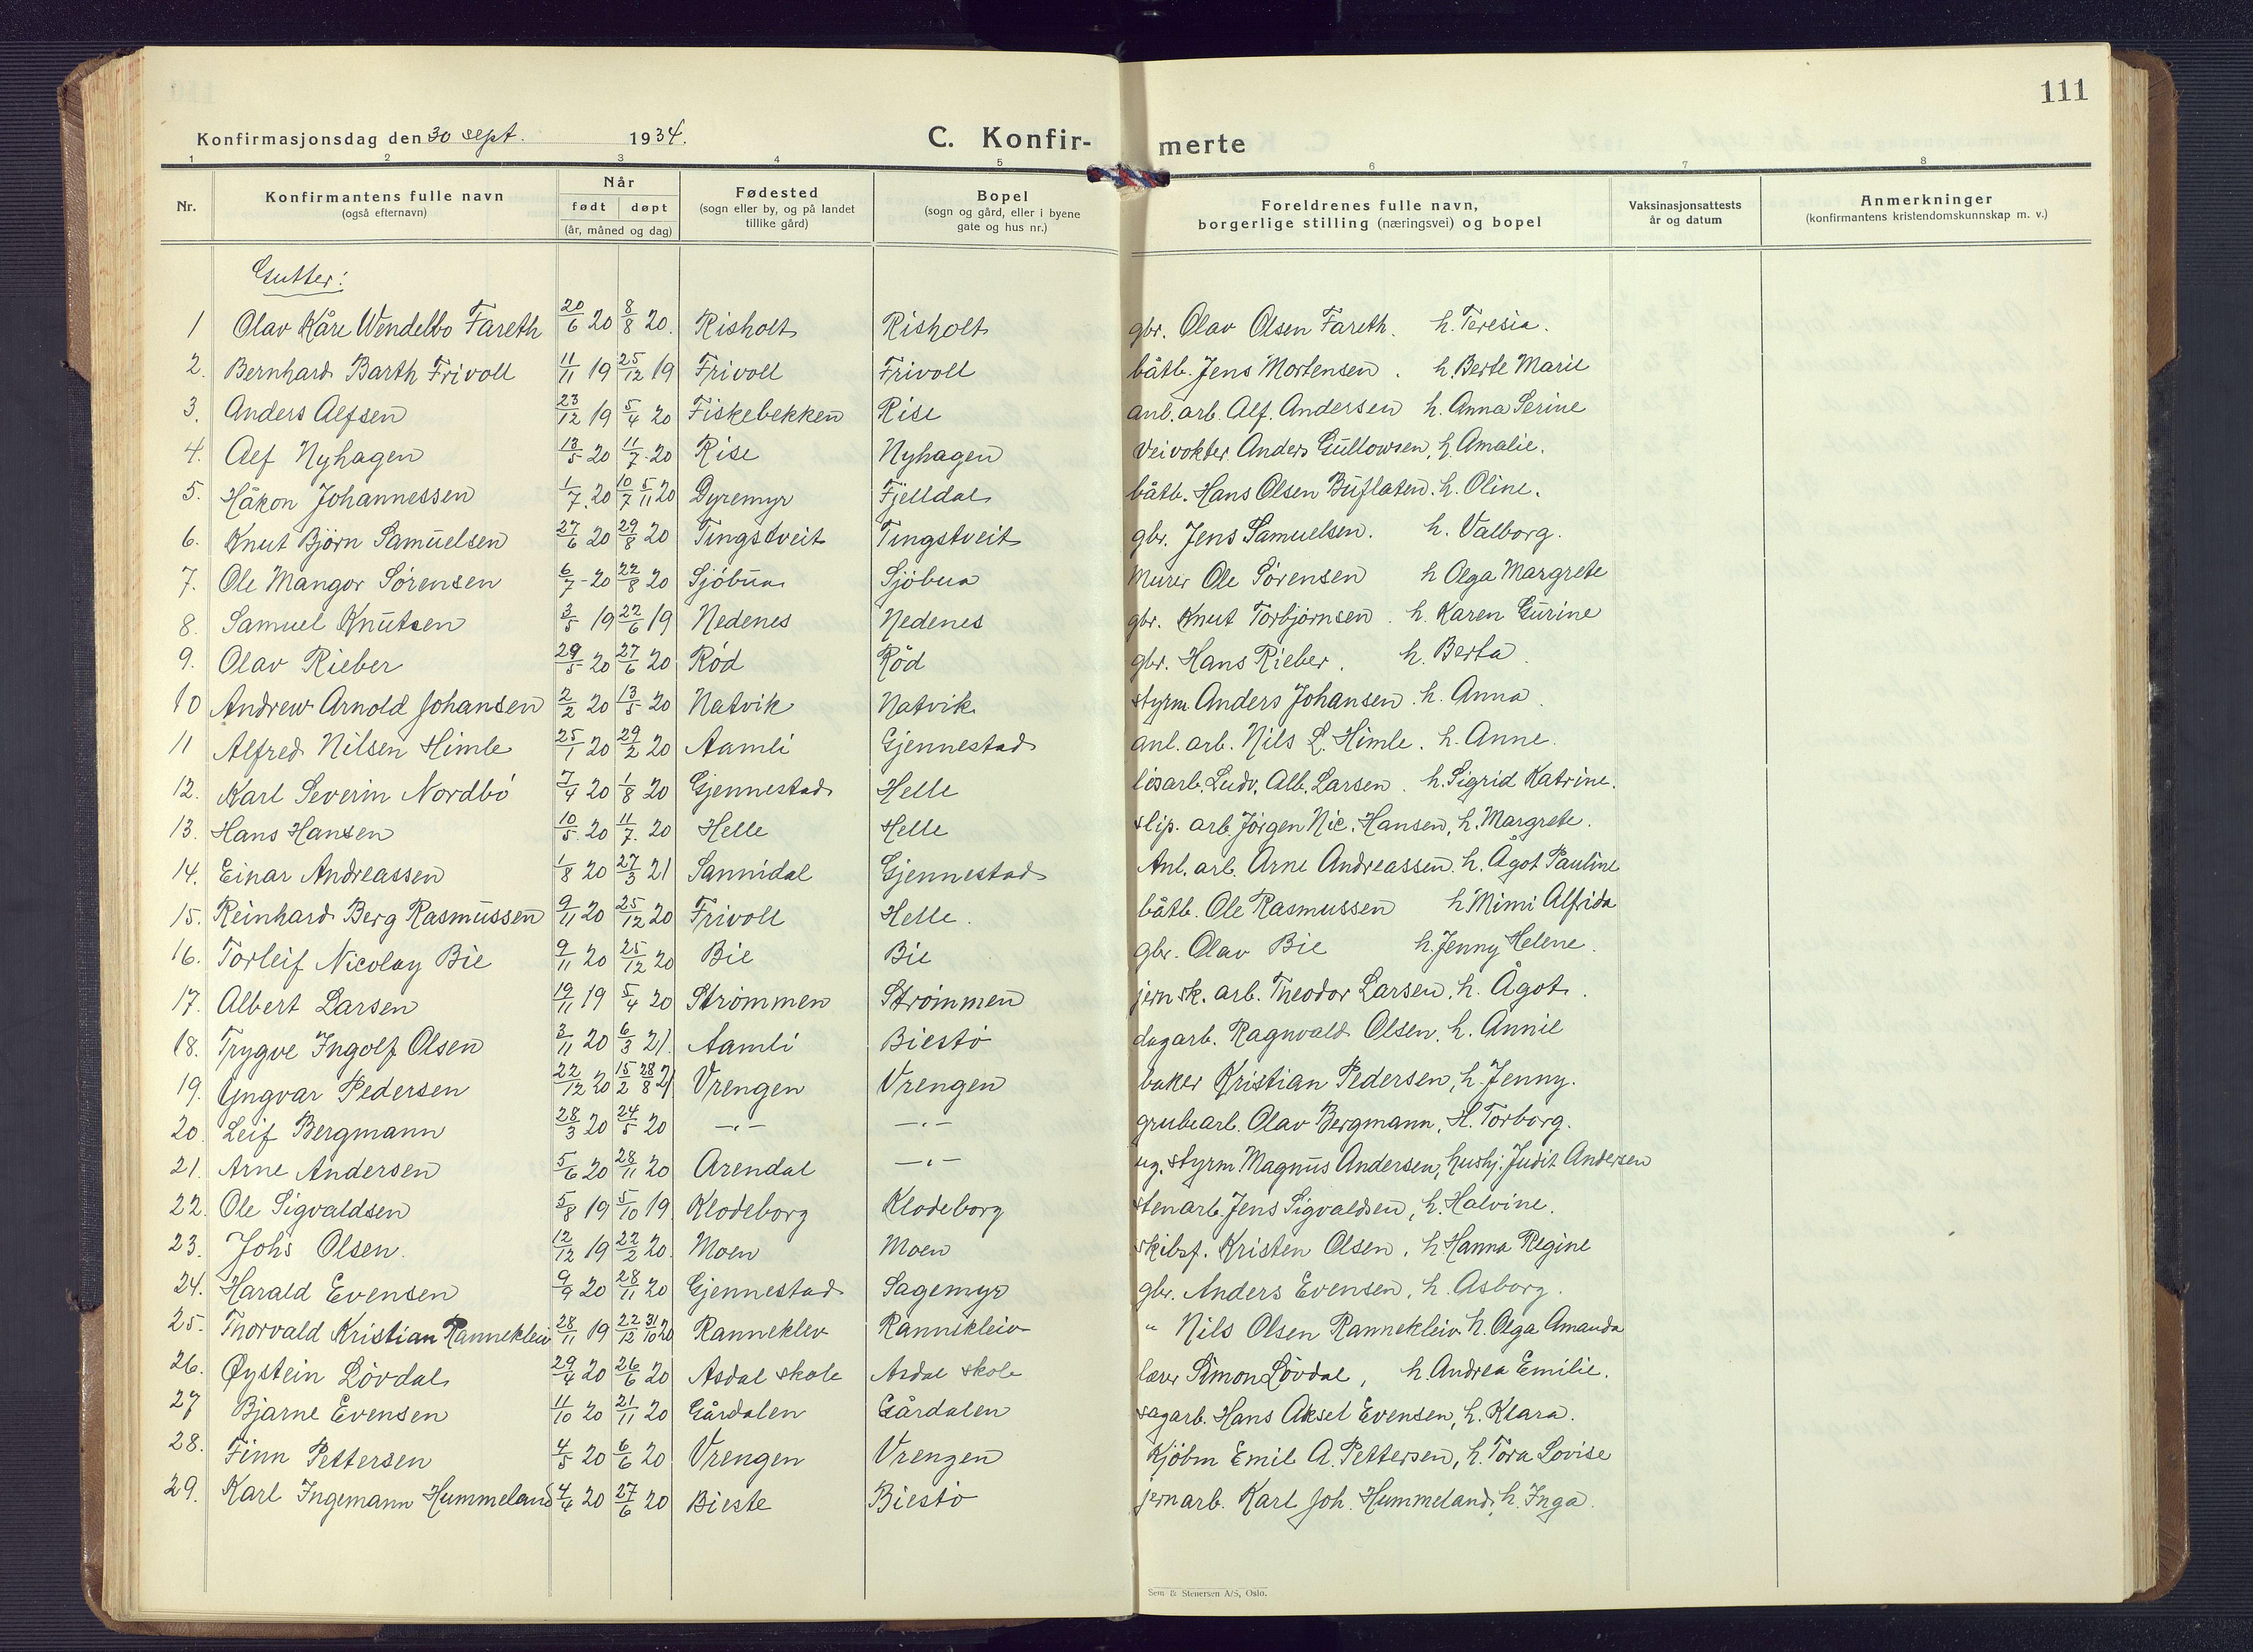 111
Konfirmasjonsdag den 30 sept. 1934.
C. Konfir- merte
1 2 3 4 5 6 7 8
Nr.
Konfirmantens fulle navn
(også efternavn)
Når
født døpt
(år, måned og dag)
Fødested
(sogn eller by, og på landet
tillike gård)
Bopel
(sogn og gård, eller i byene
gate og hus nr.)
Foreldrenes fulle navn,
borgerlige stilling (næringsvei) og bopel
Vaksinasjonsattests
år og datum
Anmerkninger
(konfirmantens kristendomskunnskap m. v.)
Gutter:
1 Olav Kåre Wendelbo Fareth 20/6 20 8/8 20. Risholt Risholt gbr. Olav Olsen Fareth. h. Teresia.
2. Bernhard Barth Frivoll 11/11 19 25/12 19 Frivoll Frivoll båtb. Jens Mortensen. h. Berte Marie
3. Anders Alfsen 23/12 19 5/4 20 Fiskebekken Rise anl. arb. Alf. Andersen h. Anna Serine
4. Alf Nyhagen 13/5 20 11/7 20 Rise Nyhagen Veivokter Anders Gullowsen, h. Amalie.
5. Håkon Johannessen 1/7 20 10/7 5/11 20 Dyremyr Fjelldal båtb. Hans Olsen Buflaten. h. Oline.
6. Knut Bjørn Samuelsen 27/6 20 29/8 20 Tingstveit Tingstveit gbr. Jens Samuelsen. h. Valborg.
7. Ole Mangor Sørensen 6/7 20 22/8 20 Sjöbua Sjöbua Murer Ole Sørensen h Olga Margrete
8. Samuel Knutsen 3/5 19 22/6 19 Nedenes Nedenes gbr. Knut Torbjørnsen. h. Karen Gurine
9. Olav Rieber 29/5 20 27/6 20 Rød Rød gbr. Hans Rieber. h. Berta.
10 Andrew Arnold Johansen 2/2 20 13/5 20 Natvik Natvik styrm Anders Johansen. h. Anna.
11 Alfred Nilsen Himle 25/1 20 29/2 20 Aamli Gjennestad anl. arb. Nils L. Himle. h. Anne.
12. Karl Severin Nordbö 7/4 20 1/8 20 Gjennestad Helle løsarb. Ludv. Alb. Larsen. h. Sigrid Katrine.
13. Hans Hansen 10/5 20 11/7 20 Helle Helle slip. arb. Jörgen Nic. Hansen, h. Margrete.
14. Einar Andreassen 1/8 20 27/3 21 Sannidal Gjennestad Anl. arb. Arne Andreassen. h. Ågot Pauline
15. Reinhard Berg Rasmussen 9/11 20 25/12 20 Frivoll Helle. båtb. Ole Rasmussen h Mimi Alfrida
16. Torleif Nicolay Bie 9/11 20 25/12 20 Bie Bie gbr. Olav Bie h. Jenny Helene.
17. Albert Larsen 19/11 19 5/4 20 Strømmen Strømmen jern sk. arb. Theodor Larsen. h. Ågot.
18. Trygve Ingolf Olsen 3/11 20 6/3 21. Aamli Biestö dagarb. Ragnvald Olsen, h. Annie
19. Yngvar Pedersen 22/12 20 15/2 28/8 21 Vrengen Vrengen baker Kristian Pedersen, h. Jenny.
20. Leif Bergmann 28/3 20 24/5 20 —"— —"— grubearb. Olav Bergmann. H. Torborg.
21. Arne Andersen 5/6 20 28/11 20 Arendal —"— ug. styrm Magnus Andersen, hushj. Judit Andersen
22. Ole Sigvaldsen 5/8 19 5/10 19. Klodeborg Klodeborg stenarb. Jens Sigvaldsen, h. Halvine.
23. Johs Olsen. 12/12 19 22/2 20. Moen Moen skibsf. Kristen Olsen, h. Hanna Regine
24. Harald Evensen 9/9 20 28/11 20 Gjennestad Sagemyr gbr. Anders Evensen, h. Asborg.
25. Thorvald Kristian Rannekleiv 28/11 19 22/12 31/10 20 Ranneklev Rannekleiv " Nils Olsen Rannekleiv. h. Olga Amanda
26. Øystein Lövdal 29/4 20 26/6 20 Asdal skole Asdal skole lærer Simon Lövdal, h. Andrea Emilie.
27 Bjarne Evensen 11/10 20 21/11 20 Gårdalen Gårdalen sagarb. Hans Aksel Evensen, h. Klara.
28. Finn Pettersen 4/5 20 6/6 20 Vrengen Vrengen Kjöbm Emil A. Pettersen, h. Tora Lovise
29. Karl Ingemann Hummeland 4/4 20 27/6 20 Bieste Biestö jernarb. Karl Joh. Hummeland, h. Inga.
Sem & Stenersen A/S, Oslo.